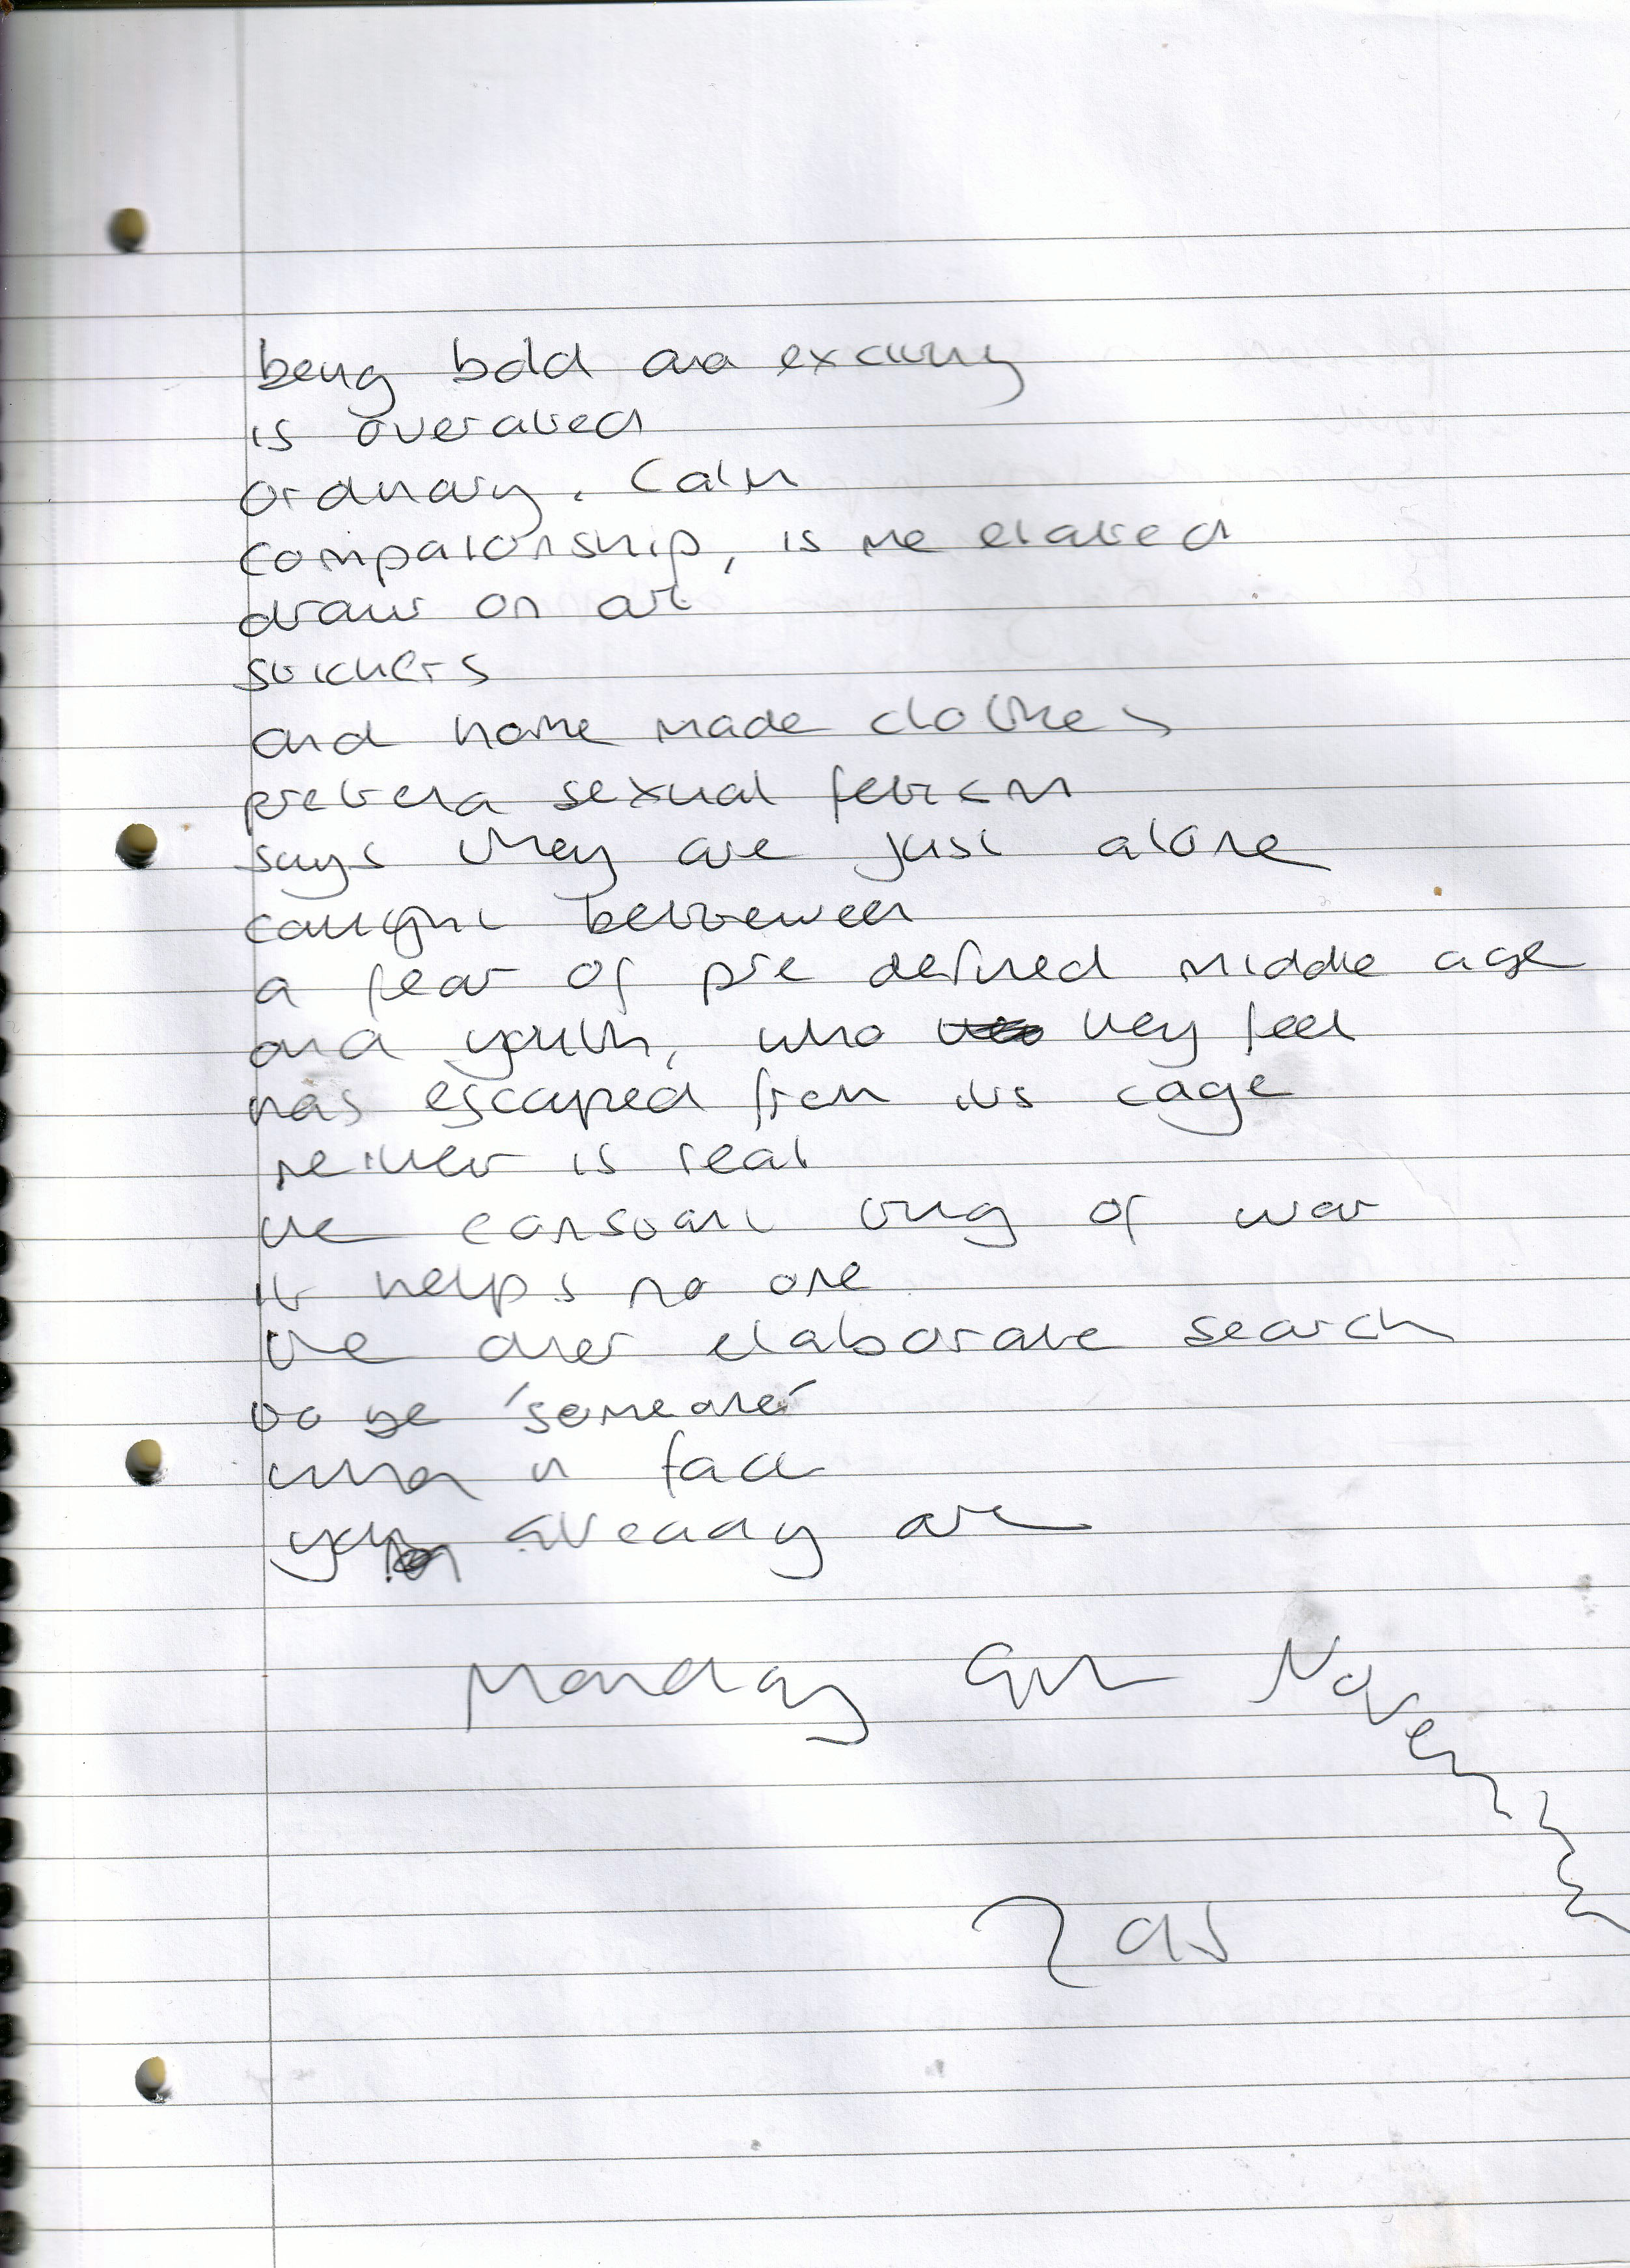 being bold and exciting
is overated
ordinary. Calm
compaionship, is me elated
draw on art
stickers
and home made clothes
pretend sexual fetism
says they are just alone
caught bettween
a fear of pre defined middle age
and youth, who they feel
has escaped from its cage
neither is real
the constant tug of war
it helps no one
the over elaborate search
to be 'someone'
when in fact
you already are
Monday 9th November